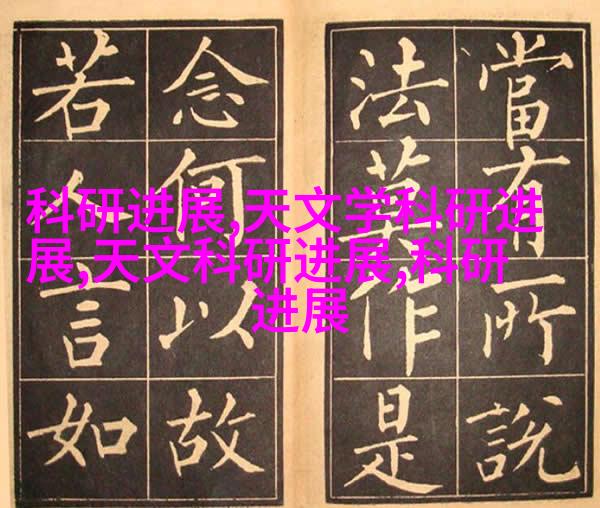 當有所說
法莫作是
念何以故
若人言如
科研进展,天文学科研进
展,天文科研进展,科研
进展